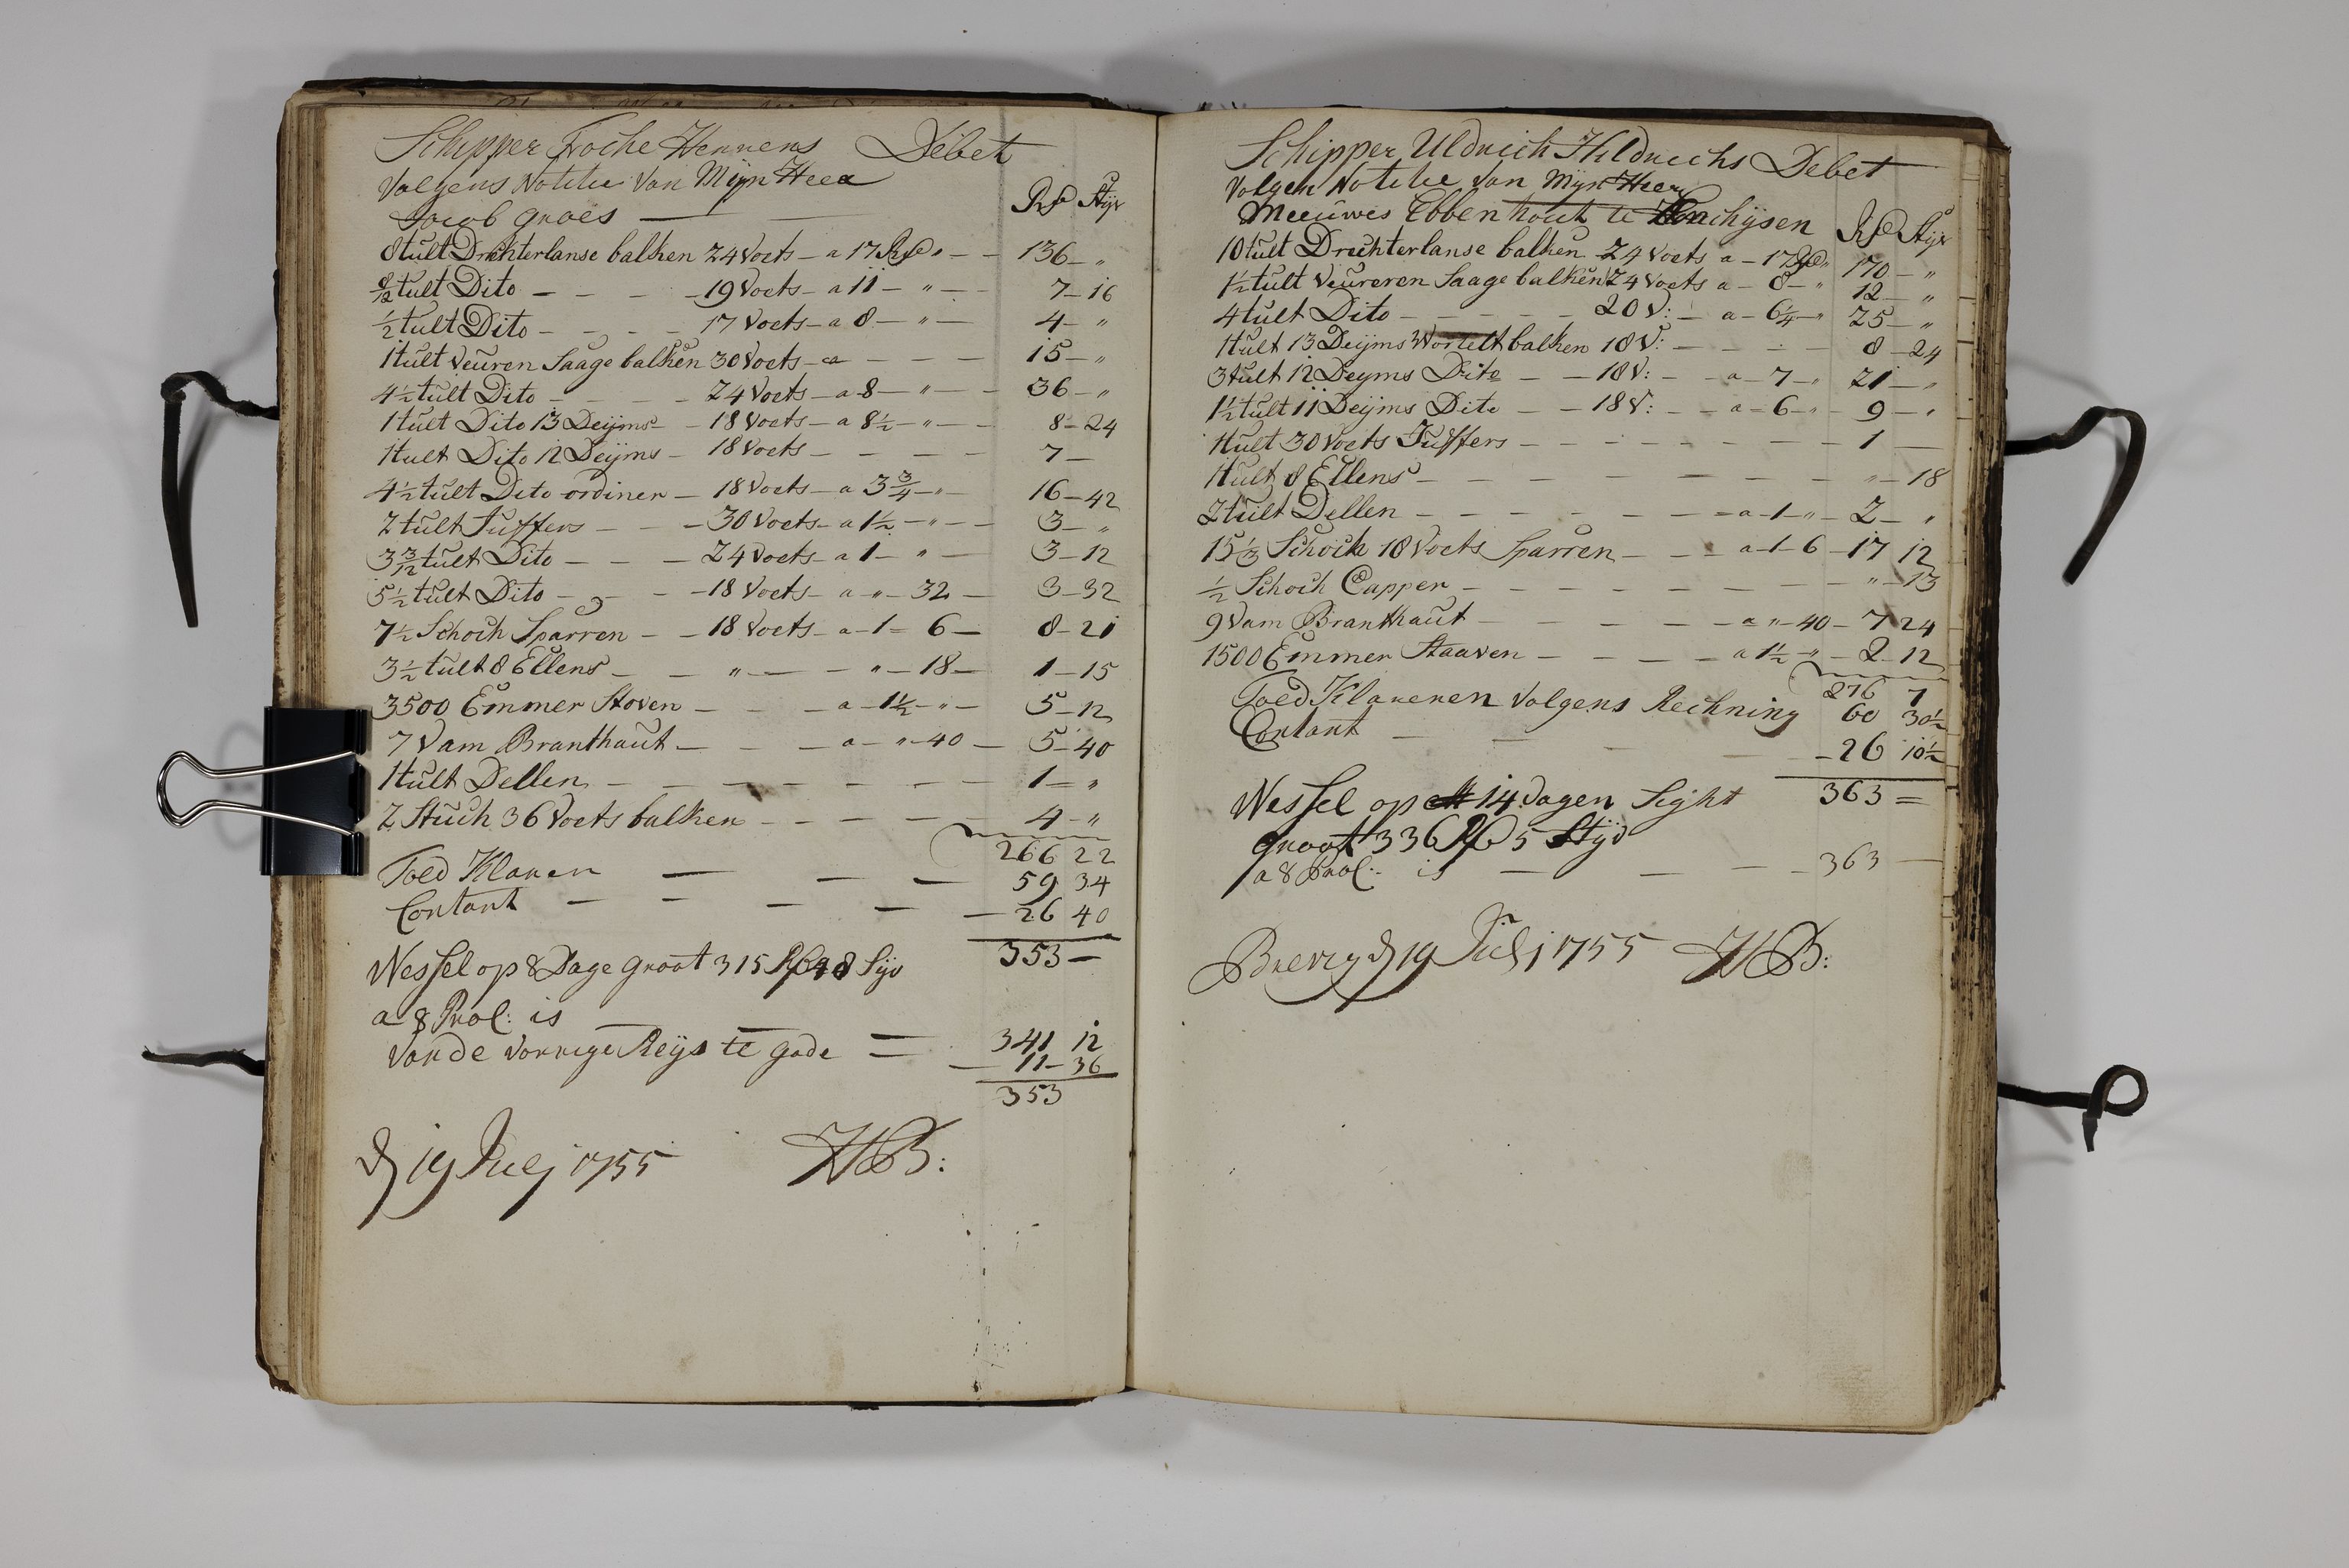 Schipper Focke Hennens Debet
Volgens Notitie Van Mijn Heer
Jacob Groes — Rd Stijv
8 tult Drechterlanse balken 24 Voets – a 17 Rd " – – 136 – "
8/12 tult Dito – – – – 19 Voets – a 11 – " – 7 – 16
½ tult Dito – – – – 17 Voets – a 8 – " – 4 – "
1 tult Veuren Saage balken 30 Voets – a – – – 15 – "
4½ tult Dito – – – – 24 Voets – a 8 – " – 36 – "
1 tult Dito 13 Deijms – – 18 Voets – a 8½ – " – 8 – 24
1 tult Dito 12 Deijms – 18 Voets – – – – 7 –
4½ tult Dito ordiner – 18 Voets – a 3¾ – " – 16 – 42
2 tult Juffers – – – 30 Voets – a 1½ – " – 3 – "
3 3/12 tult Dito – – – 24 Voets – a 1 – " – 3 – 12
5½ tult Dito – – – 18 Voets – a – " – 32 – 3 – 32
7½ Schock Sparren – – 18 Voets – a – 1 – 6 – 8 – 21
3½ tult 8 Ellens – – " – – " – 18 – 1 – 15
3500 Emmer Stoven – – – a – 1½ – " – 5 – 12
7 Vam Branthaut – – – a – " – 40 – 5 – 40
1 tult Dellen – – – – – – – 1 – "
2 Stuck 36 Voets balken – – – – 4 – "
266 22
Toed Klaren — — — 59 34
Contant – – – – – 26 40
353 –
Wessel op 8 Dage groot 315 Rd 48 Sijv
a 8 Prol: is
341 12
Vande Vorrige Reijs te gode = – 11 – 36
353
d 19 Julj 1755 HB:
Schipper Uldrich Hildrichs Debet
Volgen Notitie Van Mijn Heer
Meeuwes Ebbenhout te Enchijsen Rd Stijv
10 tult Drechterlanse balken 24 Voets a – 17 Rd " 170 – "
1½ tult Veureren Saage balken 24 Voets a – 8 – " 12 – "
4 tult Dito – – – – – 20 V: – a – 6¼ – " 25 – "
1 tult 13 Deijms Wortelt balken 18 V: – – – – 8 – 24
3 tult 12 Deyms Dito – – 18 V: – a – 7 – " 21 – "
1½ tult 11 Deijms Dito – – 18 V: – – a – 6 – " 9 – "
1 tult 30 Voets Juffers – – – – – – – – 1 –
1 tult 8 Ellens – – – – – – – – " – 18
2 tult Dellen – – – – – – – a – 1 – " – 2 – "
15⅓ Schock 18 Voets Sparren – – – a – 1 – 6 – 17 12
½ Schock Capper – – – – – – – – " – 13
9 Vam Branthaut – – – – – a – " – 40 – 7 24
1500 Emmer Staaven – – – – a 1½ – " – 2 – 12
276 7
Toed Klareren Volgens Rechning 60 30½
Contant – – – – – 26 10½
363 =
Wessel op 14 Dagen Sight
groot 336 Rd 5 Stijv
a 8 Prol: is – – – 363 –
Brevig d 19 Julj 1755 HB: